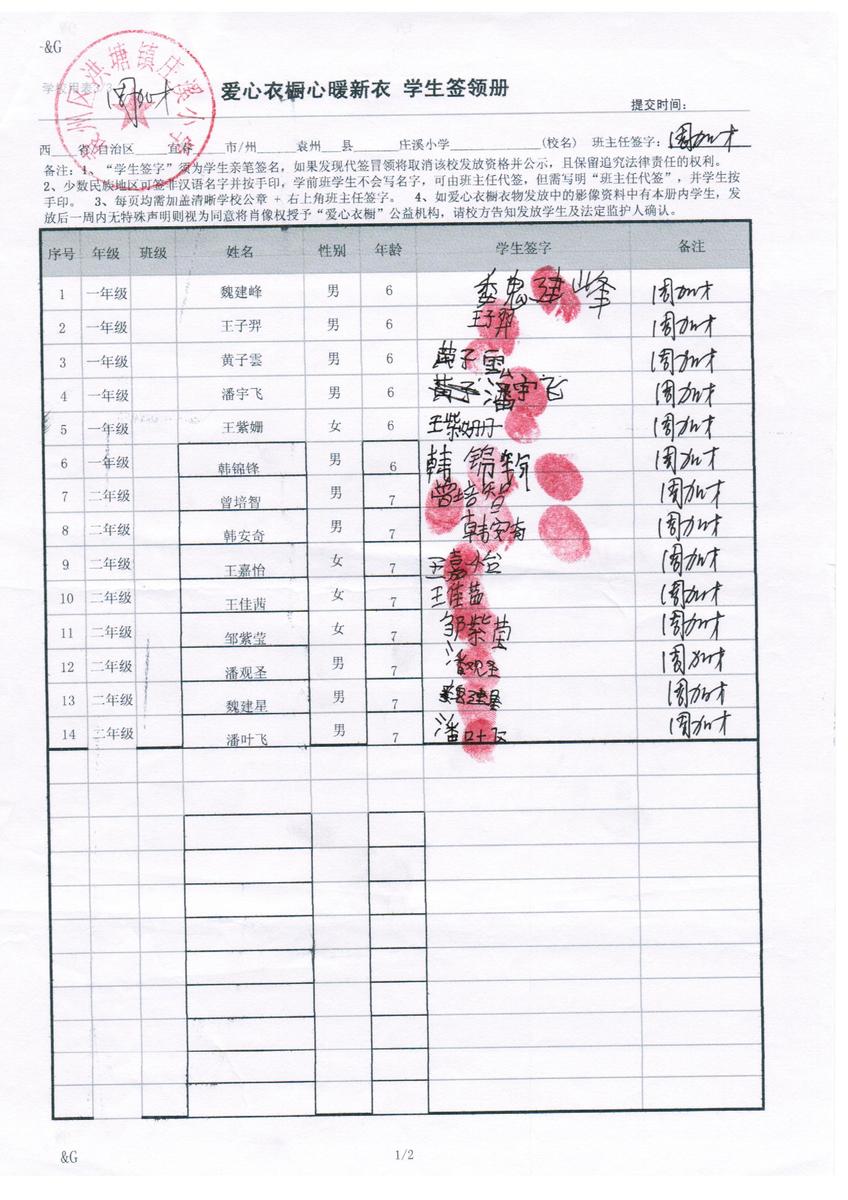 &G
学校用表3/3
袁州区洪塘镇庄溪小学
周加才
爱心衣橱心暖新衣 学生签领册
提交时间：
西 省/自治区 宜春 市/州 袁州 县 庄溪小学 （校名） 班主任签字：周加才
备注：1、“学生签字”须为学生亲笔签名，如果发现代签冒领将取消该校发放资格并公示，且保留追究法律责任的权利。
2、少数民族地区可签非汉语名字并按手印，学前班学生不会写名字，可由班主任代签，但需写明“班主任代签”，并学生按
手印。 3、每页均需加盖清晰学校公章 + 右上角班主任签字。 4、如爱心衣橱衣物发放中的影像资料中有本册内学生，发
放后一周内无特殊声明则视为同意将肖像权授予“爱心衣橱”公益机构，请校方告知发放学生及法定监护人确认。
序号 年级 班级 姓名 性别 年龄 学生签字 备注
1 一年级 魏建峰 男 6 魏建峰 周加才
2 一年级 王子羿 男 6 王子羿 周加才
3 一年级 黄子雲 男 6 黄子雲 周加才
4 一年级 潘宇飞 男 6 潘宇飞 周加才
5 一年级 王紫姗 女 6 王紫姗 周加才
6 一年级 韩锦锋 男 6 韩锦 周加才
7 二年级 曾培智 男 7 曾培智 周加才
8 二年级 韩安奇 男 7 韩安奇 周加才
9 二年级 王嘉怡 女 7 王嘉怡 周加才
10 二年级 王佳茜 女 7 王佳茜 周加才
11 二年级 邹紫莹 女 7 邹紫莹 周加才
12 二年级 潘观圣 男 7 潘观圣 周加才
13 二年级 魏建星 男 7 魏建星 周加才
14 二年级 潘叶飞 男 7 潘叶飞 周加才
&G
1/2